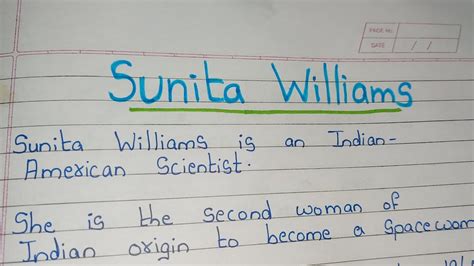 PAGE NO.
DATE / /
Sunita Williams
Sunita Williams is an Indian-
American Scientist.
She is the second woman of
Indian origin to become a Spacewom